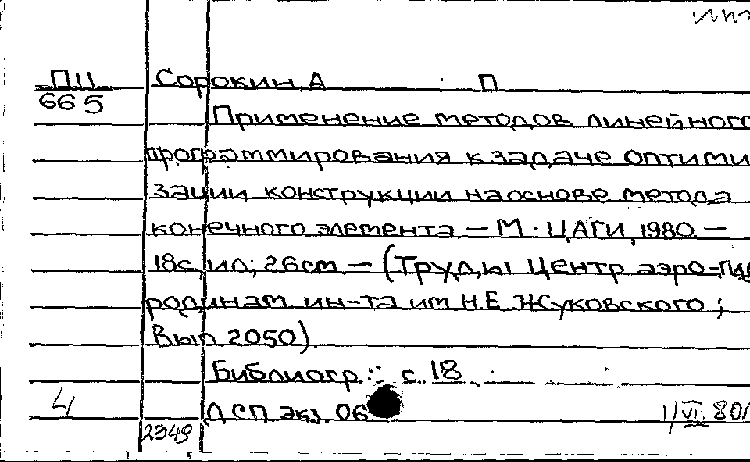 ПII Сорокин А П
665
Применение методов линейного
программирования к задаче оптими
зации конструкции на основе метода
конечного элемента – М. ЦАГИ, 1980. –
18с, ил; 26см – (Труды Центр аэро-гид
родинам ин-та им Н.Е. Жуковского;
Вып 2050)
Библиогр.: с. 18
4 ДСП экз. 06 1/VI. 80
2349